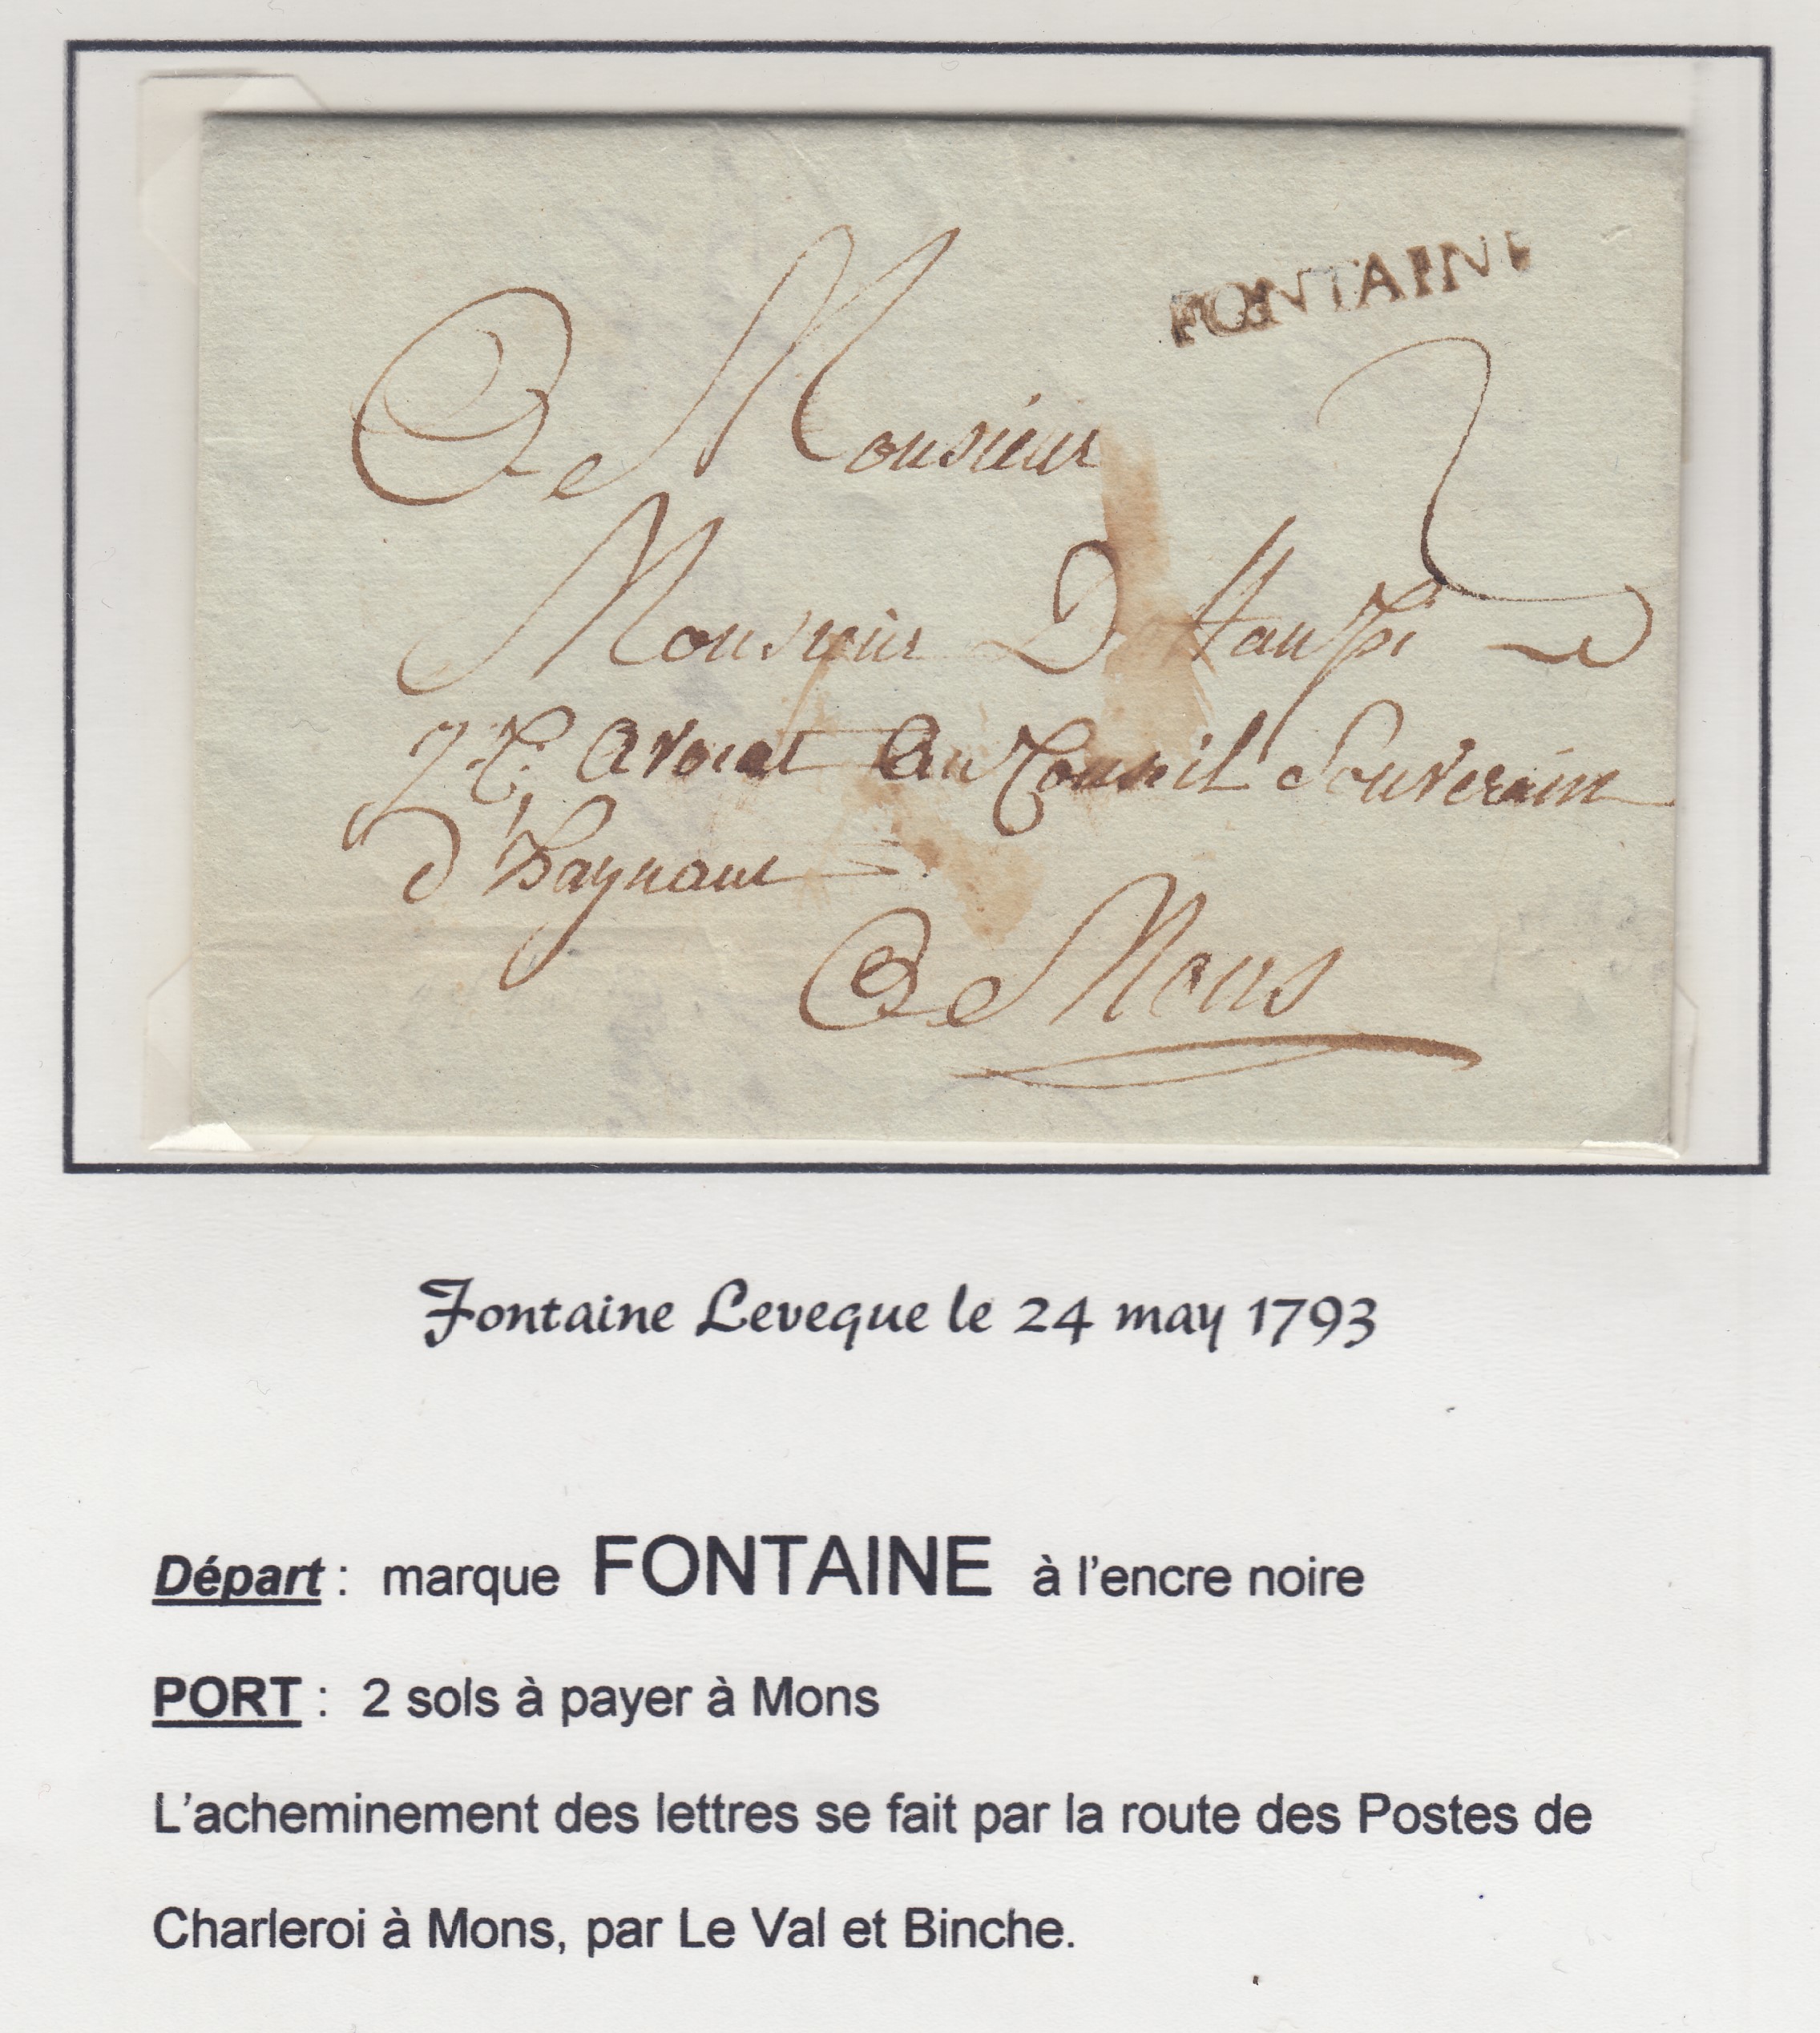 FONTAINE
A Monsieur
2
Monsieur
Avocat Au Conseil Souverain
d'haynaut
A Mons
Fontaine Leveque le 24 may 1793
Départ : marque FONTAINE à l'encre noire
PORT : 2 sols à payer à Mons
L'acheminement des lettres se fait par la route des Postes de
Charleroi à Mons, par Le Val et Binche.